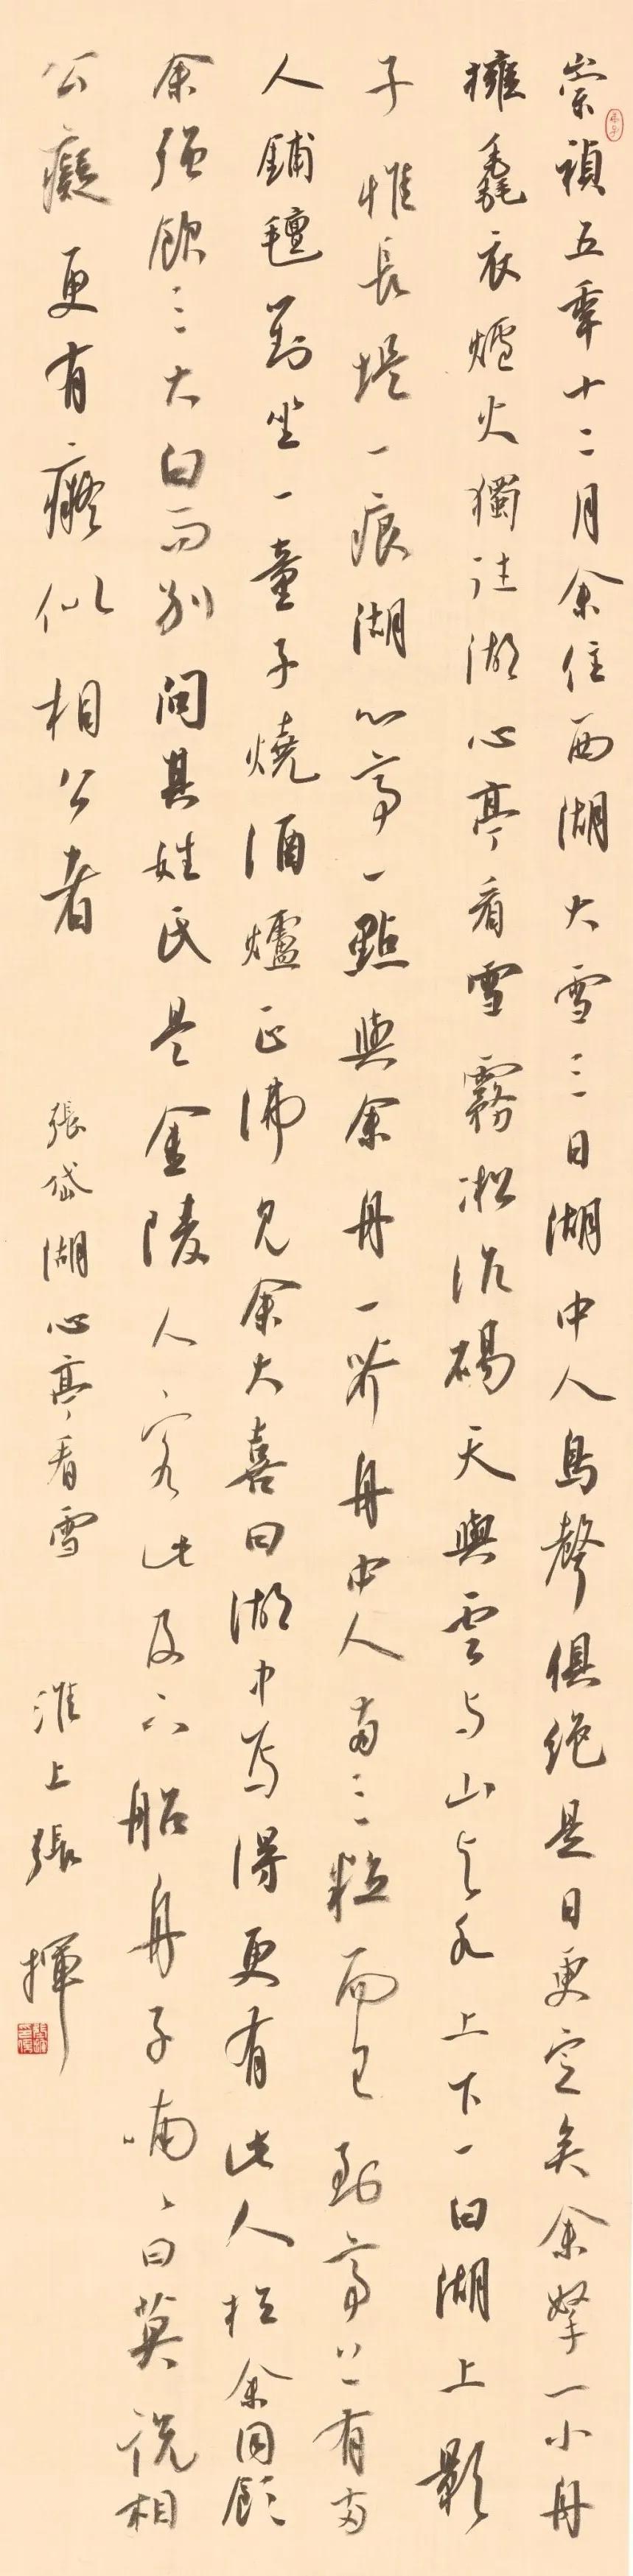 崇禎五年十二月余住西湖大雪三日湖中人鳥聲俱絕是日更定矣余拏一小舟
擁毳衣爐火獨往湖心亭看雪霧凇沆碭天與雲與山與水上下一白湖上影
子惟長堤一痕湖心亭一點與余舟一芥舟中人兩三粒而已到亭上有兩
人鋪氈對坐一童子燒酒爐正沸見余大喜曰湖中焉得更有此人拉余同飲
余強飲三大白而別問其姓氏是金陵人客此及下船舟子喃々曰莫說相
公癡更有癡似相公者
張岱湖心亭看雪
淮上張揮